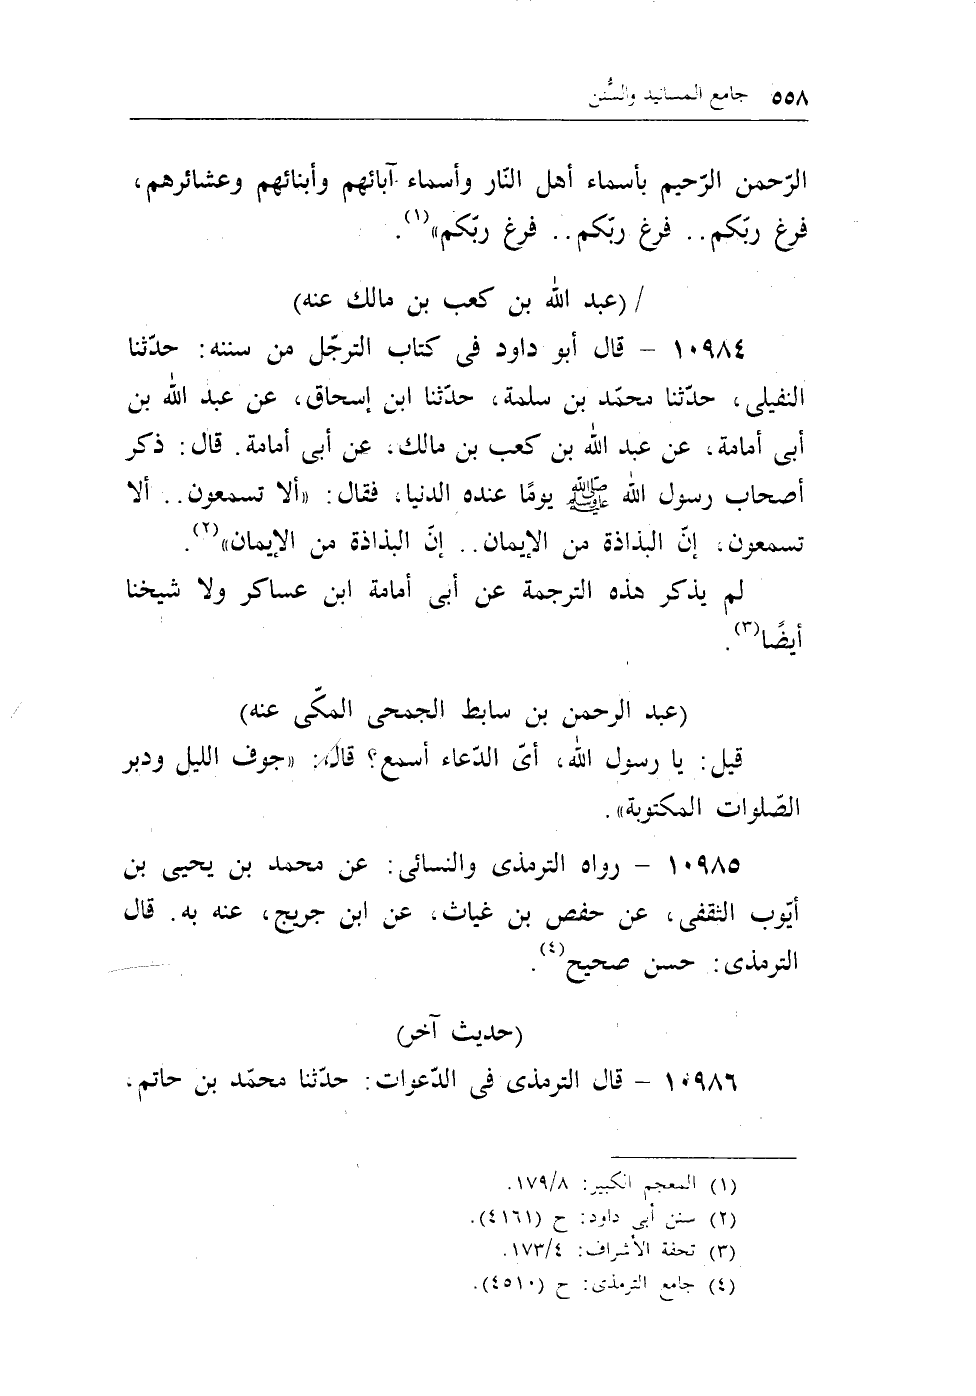 ٥٥٨ جامع المسانيد والسُّنن
الرّحمن الرّحيم بأسماء أهل النّار وأسماء آبائهم وأبنائهم وعشائرهم،
فرغ ربّكم.. فرغ ربّكم.. فرغ ربّكم»(١).
/ (عبد الله بن كعب بن مالك عنه)
١٠٩٨٤ – قال أبو داود فى كتاب الترجّل من سننه: حدّثنا
النفيلى، حدّثنا محمّد بن سلمة، حدّثنا ابن إسحاق، عن عبد الله بن
أبى أمامة، عن عبد الله بن كعب بن مالك، عن أبى أمامة. قال: ذكر
أصحاب رسول الله ﷺ يومًا عنده الدنيا، فقال: «ألا تسمعون.. ألا
تسمعون، إنّ البذاذة من الإيمان.. إنّ البذاذة من الإيمان»(٢).
لم يذكر هذه الترجمة عن أبى أمامة ابن عساكر ولا شيخنا
أيضًا(٣).
(عبد الرحمن بن سابط الجمحى المكّى عنه)
قيل: يا رسول الله، أىّ الدّعاء أسمع؟ قال: «جوف الليل ودبر
الصّلوات المكتوبة».
١٠٩٨٥ – رواه الترمذى والنسائى: عن محمد بن يحيى بن
أيّوب الثقفى، عن حفص بن غياث، عن ابن جريج، عنه به. قال
الترمذى: حسن صحيح(٤).
(حديث آخر)
١٠٩٨٦ – قال الترمذى فى الدّعوات: حدّثنا محمّد بن حاتم،
(١) المعجم الكبير: ١٧٩/٨.
(٢) سنن أبى داود: ح (٤١٦١).
(٣) تحفة الأشراف: ١٧٣/٤.
(٤) جامع الترمذى: ح (٤٥١٠).